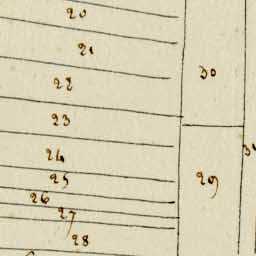 20
21
22
30
23
24
25
29
26
27
28